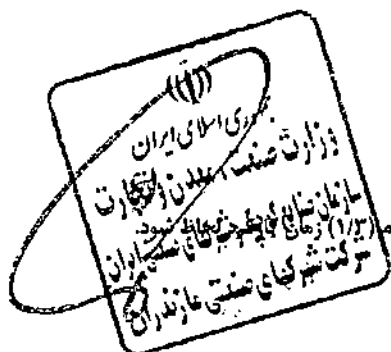 جمهوری اسلامی ایران
وزارت صنعت، معدن و تجارت
سازمان صنایع کوچک و شهرکهای صنعتی ایران
(۱/۳) زمان لحاظ شود.
شرکت شهرکهای صنعتی مازندران